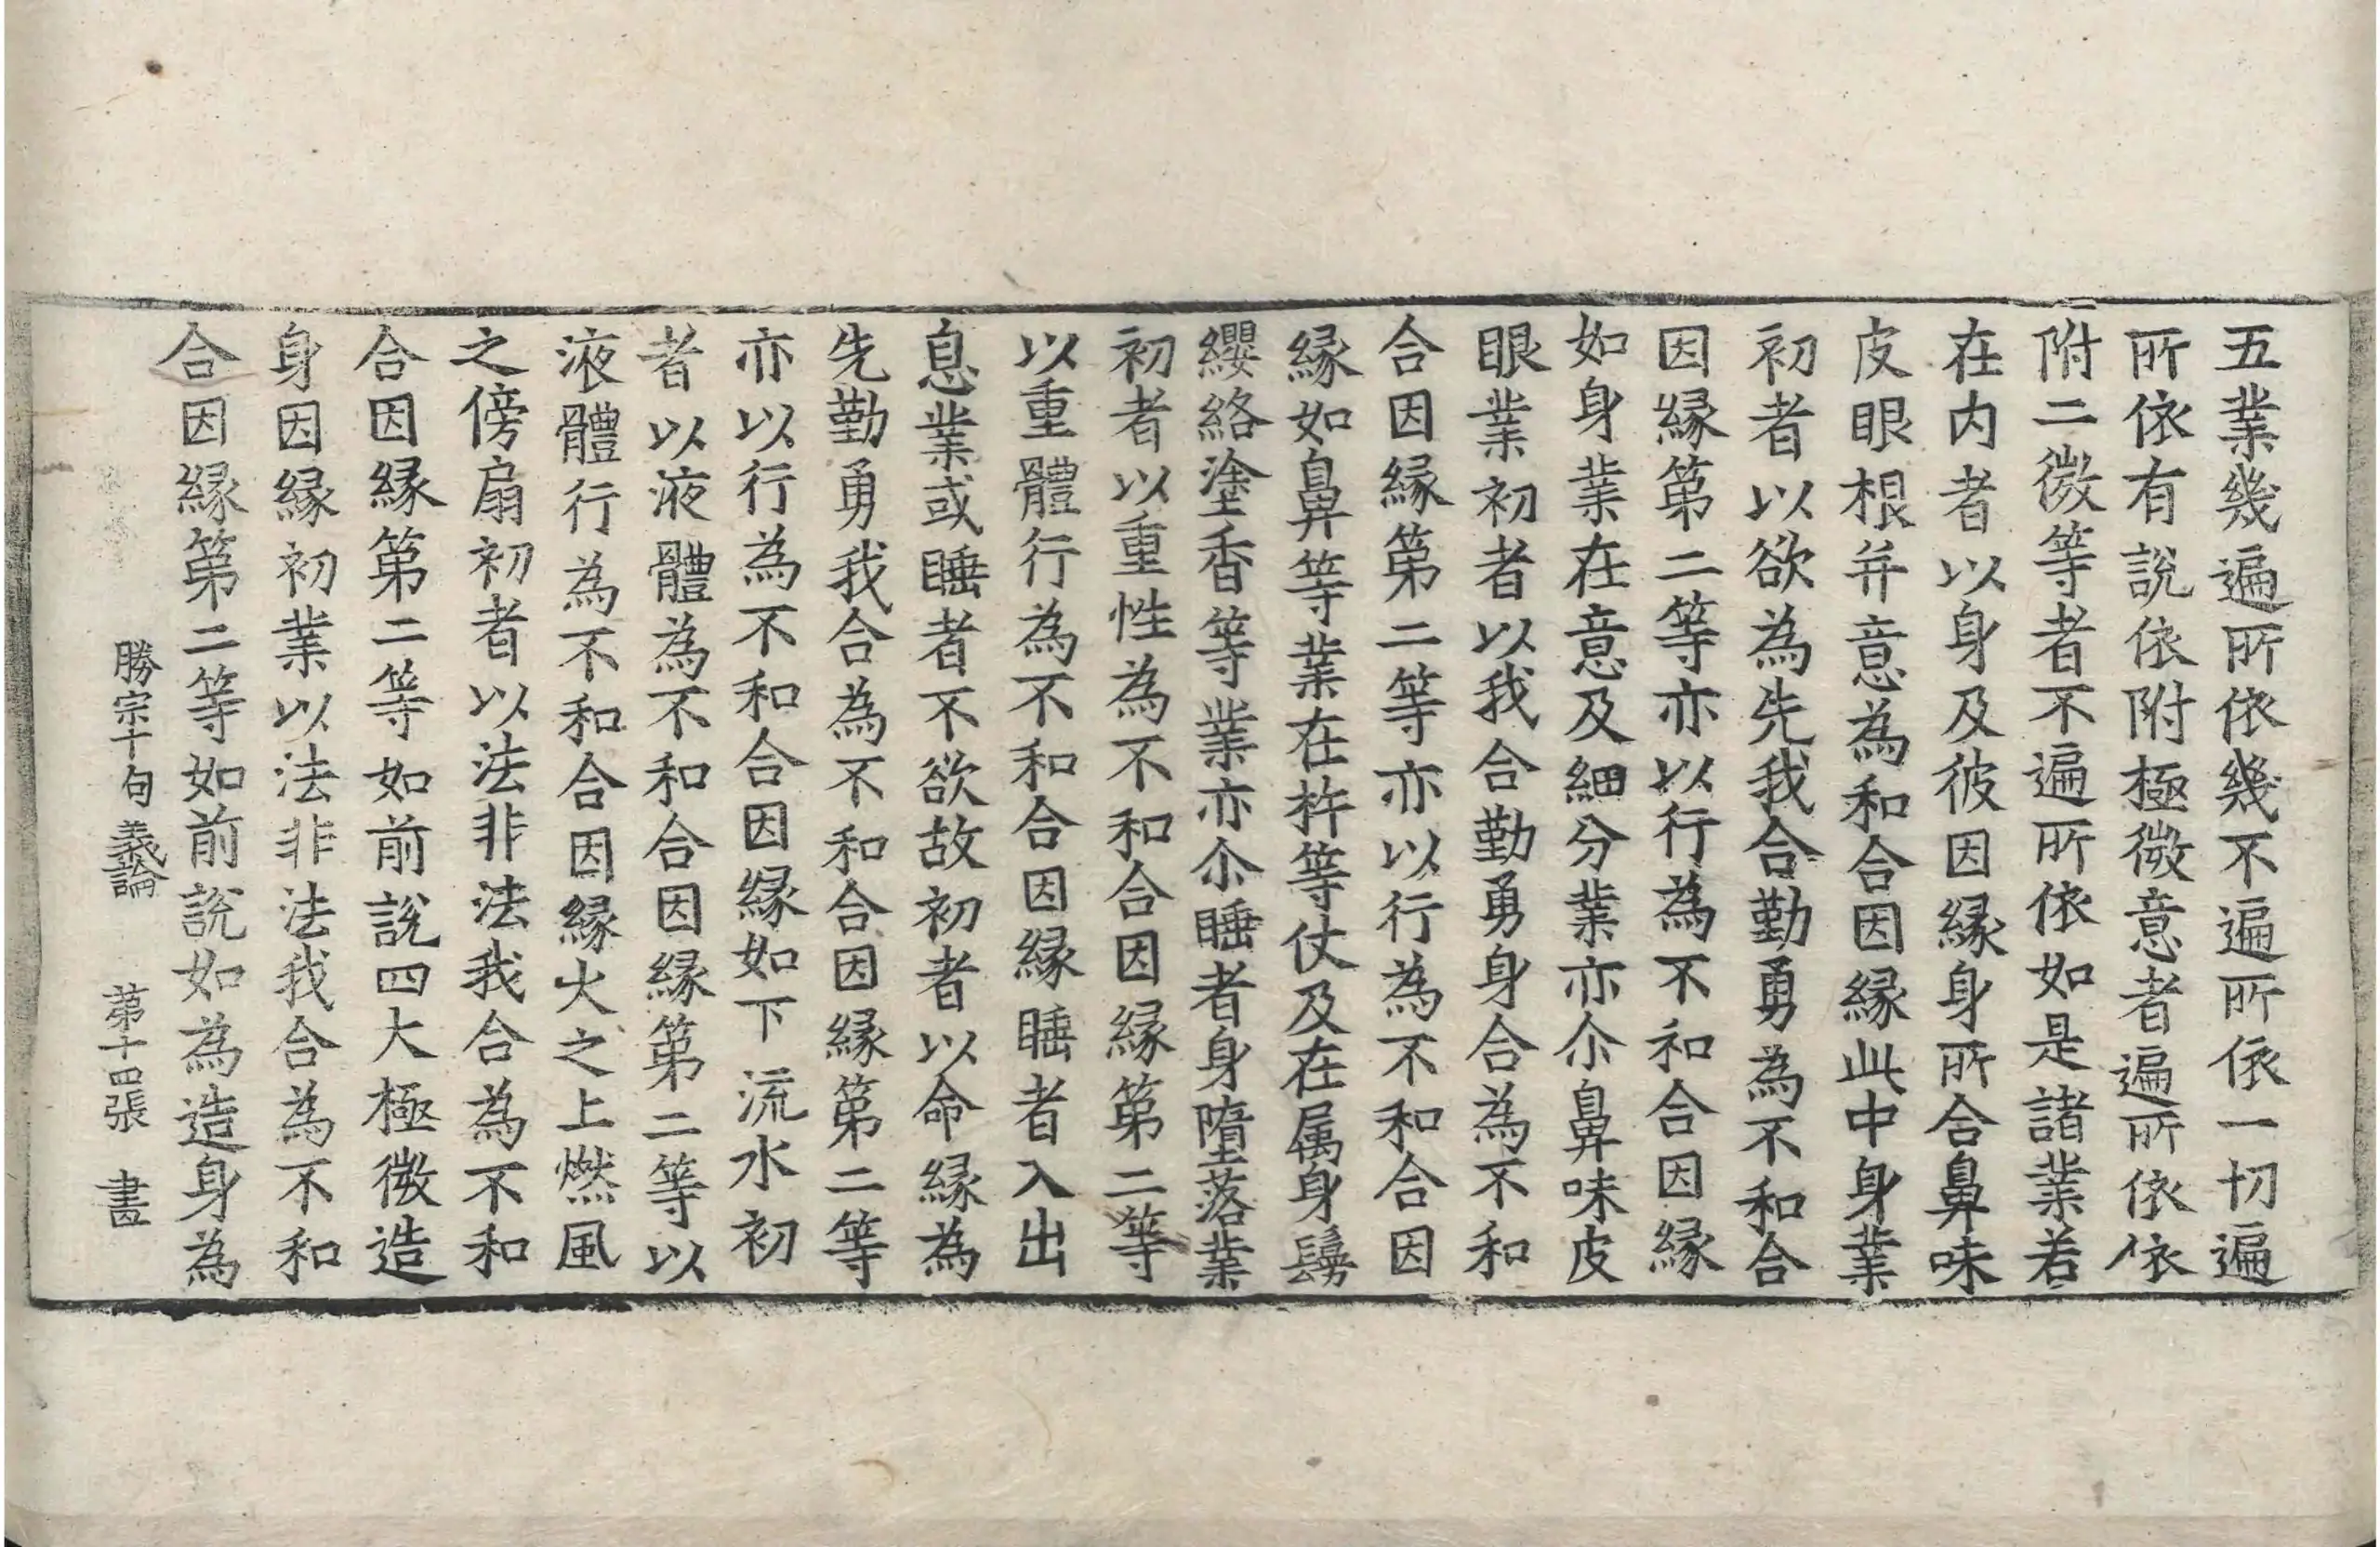 五業幾遍所依幾不遍所依一切遍
所依有說依附極微意者遍所依依
附二微等者不遍所依如是諸業若
在内者以身及彼因縁身所合鼻味
皮眼根并意為和合因縁此中身業
初者以欲為先我合勤勇為不和合
因縁第二等亦以行為不和合因縁
如身業在意及細分業亦尒鼻味皮
眼業初者以我合勤勇身合為不和
合因縁第二等亦以行為不和合因
縁如鼻等業在杵等仗及在属身鬘
纓絡塗香等業亦尒睡者身墮落業
初者以重性為不和合因縁第二等
以重體行為不和合因縁睡者入出
息業或睡者不欲故初者以命縁為
先勤勇我合為不和合因縁第二等
亦以行為不和合因縁如下流水初
者以液體為不和合因縁第二等以
液體行為不和合因縁火之上燃風
之傍扇初者以法非法我合為不和
合因縁第二等如前說四大極微造
身因縁初業以法非法我合為不和
合因縁第二等如前說如為造身為
勝宗十句義論 第十四張 畫